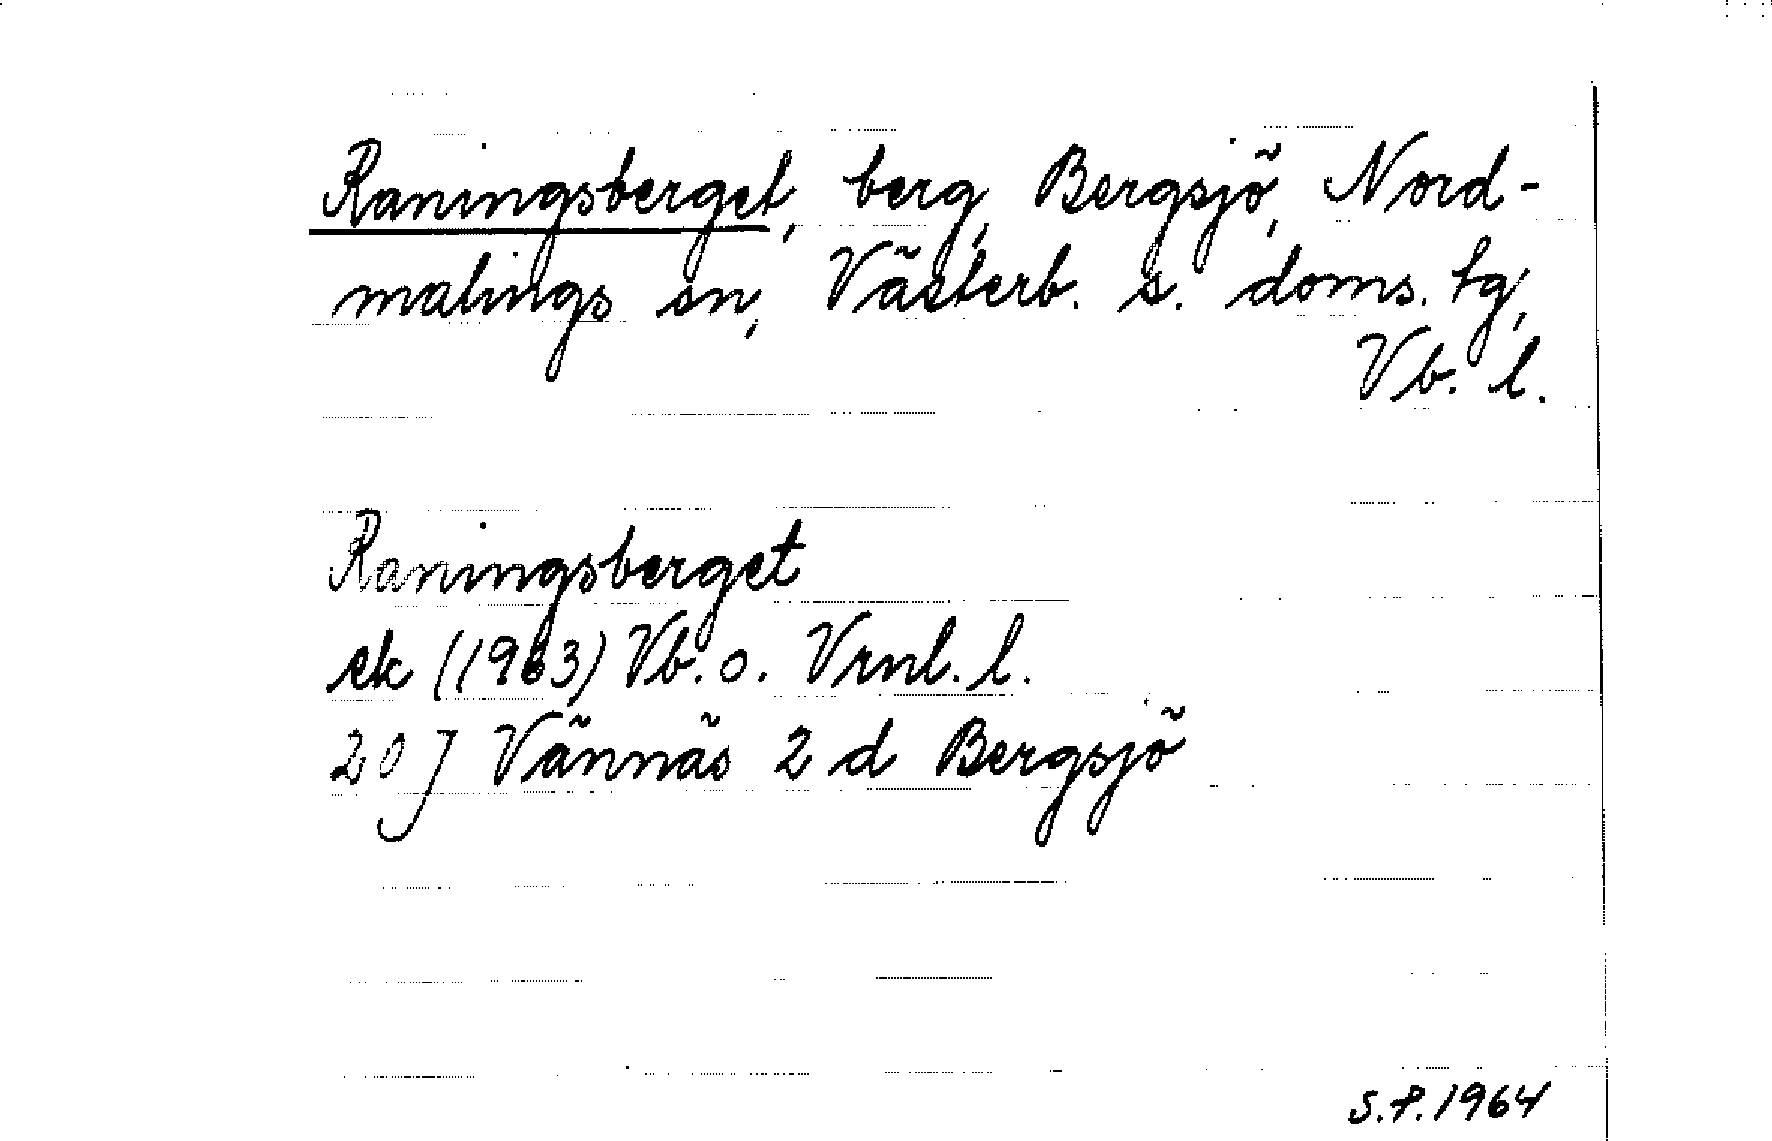 Raningsberget, berg, Bergsjö, Nord-
malings sn, Västerb. s. doms. tg,
Vb. l.
Raningsberget
ek (1963) Vb. o. Vrnl. l.
20 J Vännäs 2 d Bergsjö
S.P. 1964